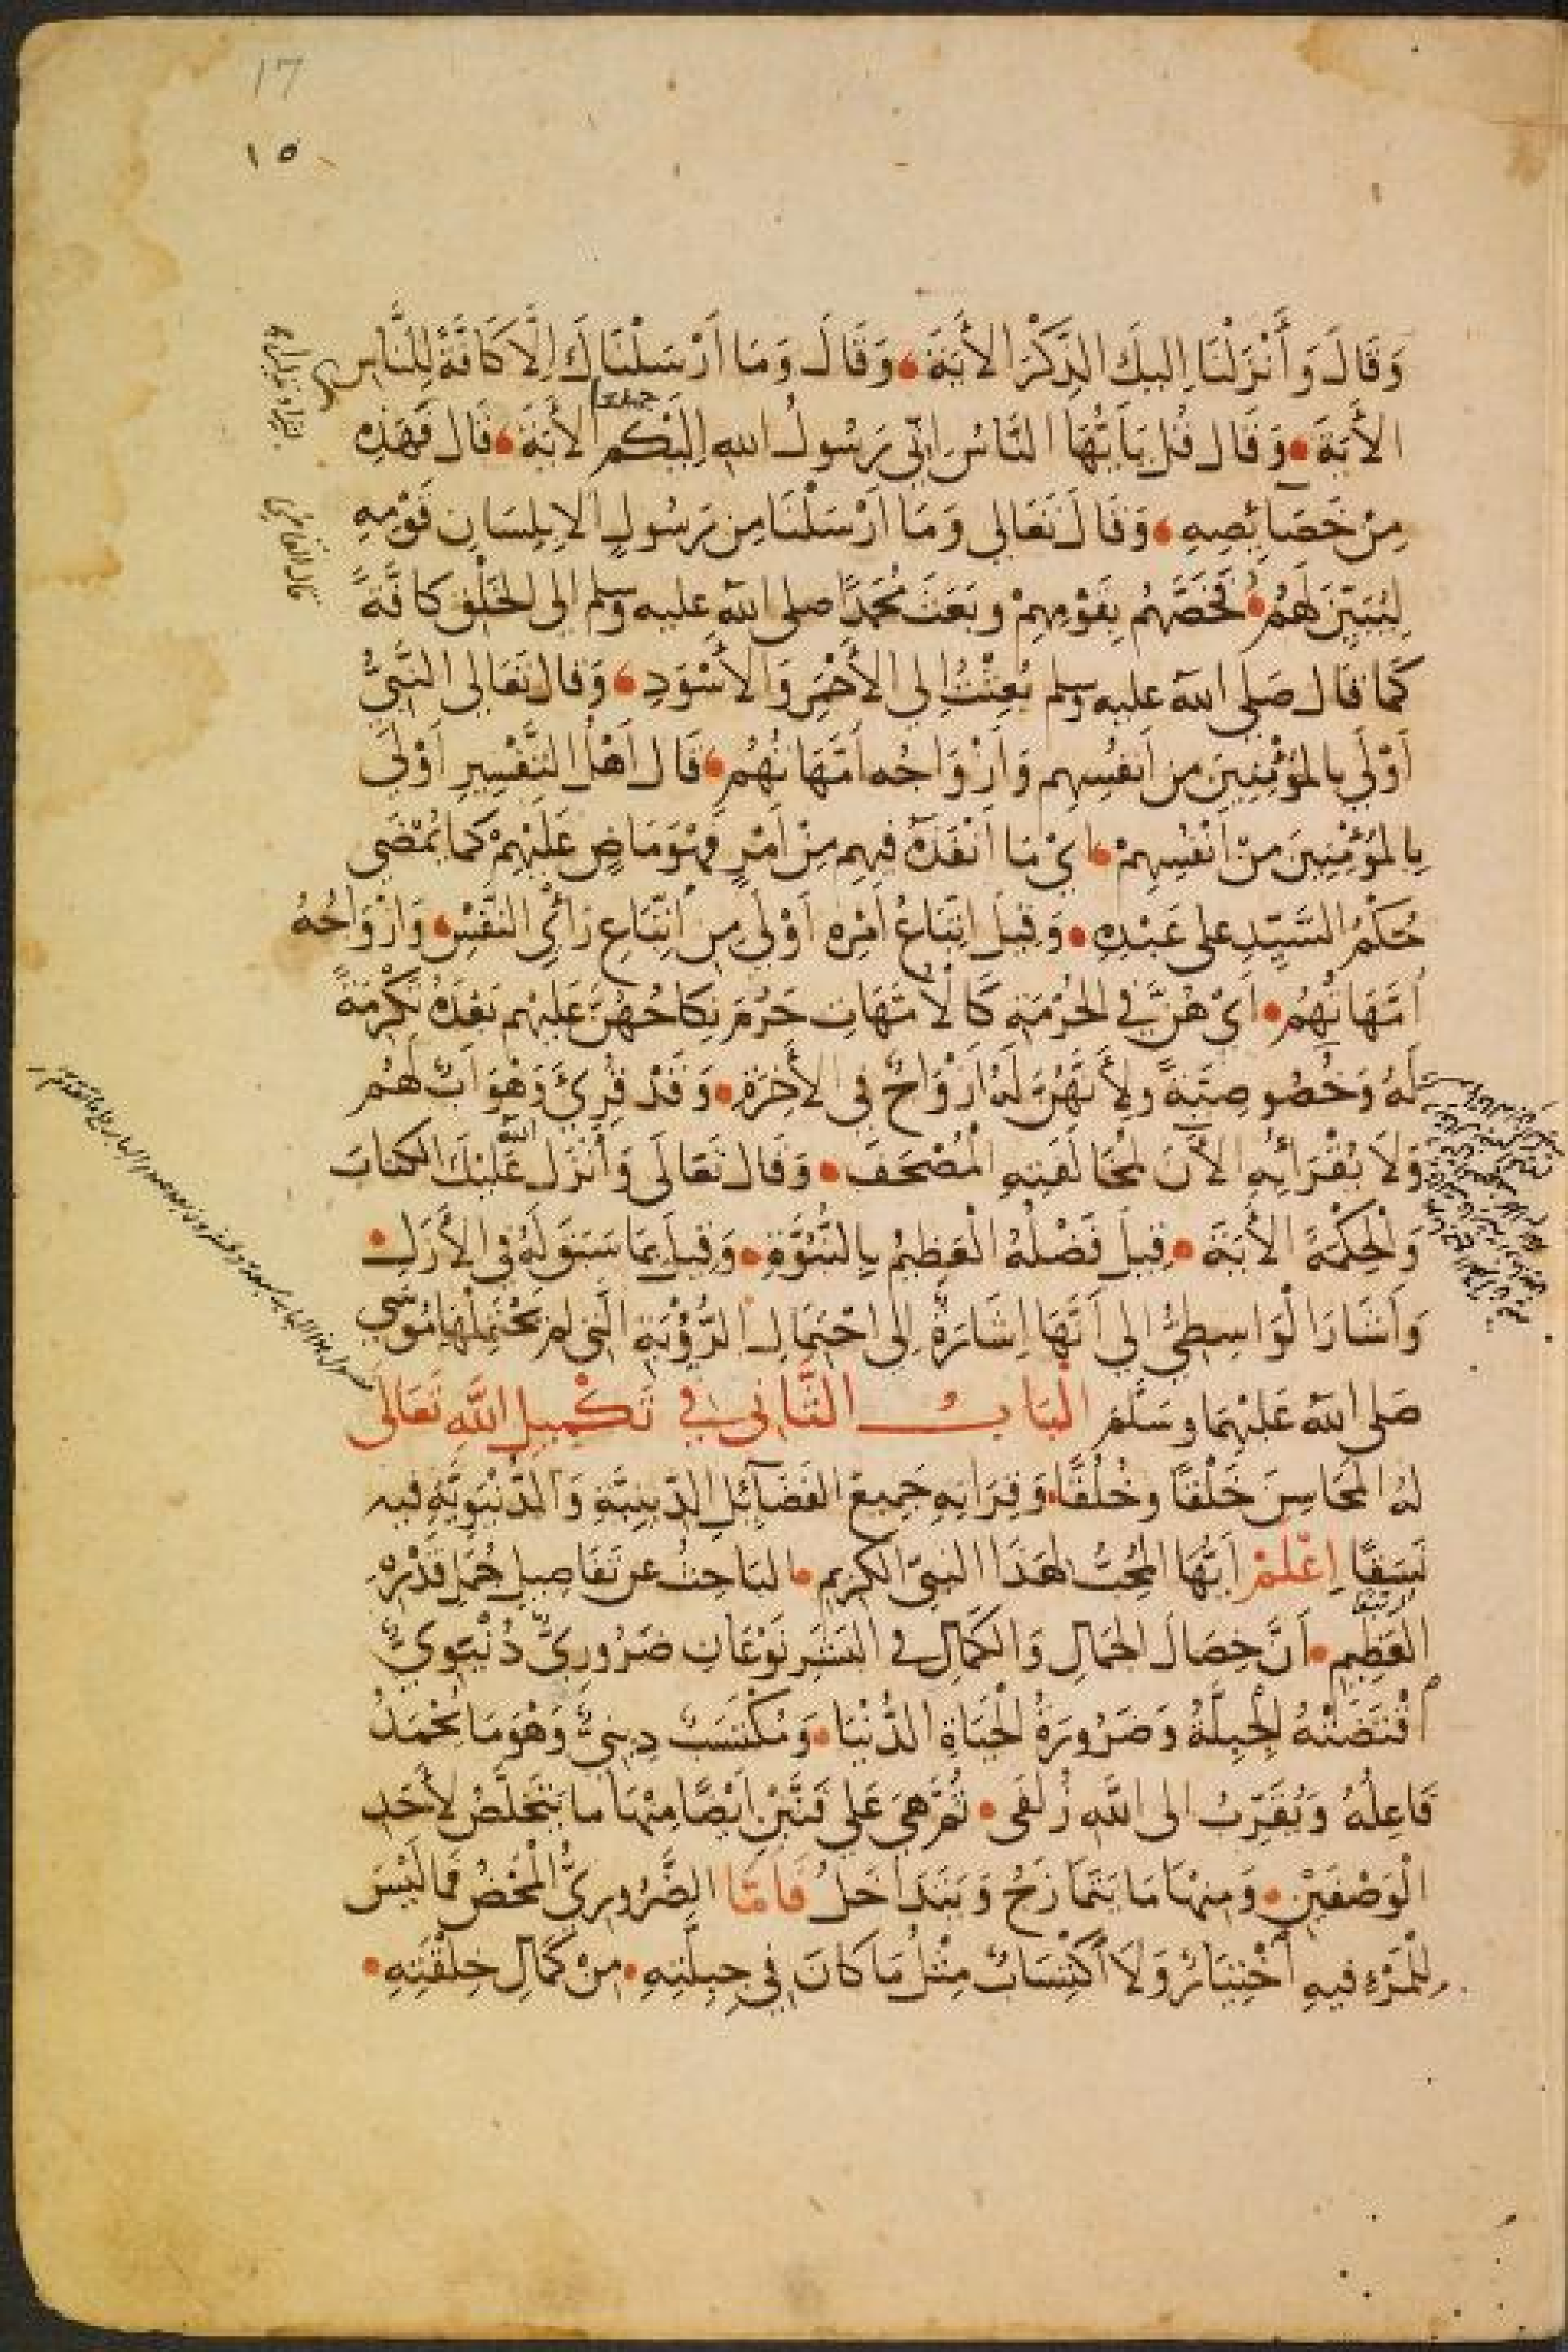 17
١٥
وَقَالَ وَأَنْزَلْنَا اِليكَ الذِّكْرَ الأَيَةَ وَقَالَ وَمَا اَرْسَلْنَاكَ اِلَّا كَافَّةً لِلنَّاسِ
جميعا
الأَيَةَ وَقَال قُل يَاَيُّهَا النَّاسُ اِنّي رَسُولُ اللهِ اِلَيْكُم الأَيَةَ قَال فَهَذِه
مِنْ خَصَايِصِهِ وَقَالَ تَعَالى وَمَا اَرْسَلْنَا مِن رَسُولٍ الا بِلِسَانِ قَوْمِهِ
لِيُبَيِّنَ لَهُمْ فَخَصَّهُم بِقَوْمِهِمْ وبَعَثَ مُحَمَّدًا صلى الله عليه وسلم الى الخَلْق كافَّةً
كَمَا قَال صَلى الله عليه وسلم بُعِثْتُ اِلى الأَحْمَرِ وَالأَسْوَدِ وَقال تَعَالى النَّبِيُّ
اَوْلَى بالمُؤْمِنِينَ مِن اَنفُسِهِم وَاَزْوَاجُه اُمَّهَاتُهُم قَال اَهْلُ التَّفْسِيرِ اَوْلَى
بِالمُؤْمِنِينَ مِنْ اَنْفُسِهِمْ اَيْ مَا اَنْفَذَهُ فِيهِم مِنْ اَمْرٍ فَهْوَ مَاضٍ عَلَيْهِمْ كما يُمْضَى
حُكْمُ السَّيِّدِ على عَبْدِهِ وَقِيلَ اتِّبَاعُ اَمْرِه اَوْلَى مِن اتِّبَاعِ رَأْيِ النَّفْسِ وَاَزْوَاجُهُ
اُمَّهَاتُهُم اَيْ هُنَّ في الحُرْمَةِ كَالأُمَّهَاتِ حَرُمَ نِكَاحُهُنَّ عَلَيْهِم بَعْدَهُ تَكْرِمَةً
لَهُ وَخُصُوصِيَّةً ولأَنَّهُنَّ لَهُ اَزْوَاجٌ فِي الأَخِرَةِ وَقَدْ قُرِئَ وَهْوَ اَبٌ لَهُم
الله
وَلَا يُقْرَأُ بِهِ الأَنَ لِمُخَالَفَتِهِ الْمُصْحَفَ وَقَال تَعَالَى وَأَنْزَلَ عَلَيْكَ الكتابَ
وَالْحِكْمَةَ الأَيَةَ قِيلَ فَضْلُهُ الْعَظِيمُ بِالنُّبُوَّةِ وَقِيلَ بِمَا سَبَقَ لَهُ في الأَزَلِ
وَاَشَارَ الْوَاسِطِيُّ اِلى اَنَّهَا اِشَارَةٌ اِلى احْتِمَالِ الرُّؤْيَةِ الَّتي لم يَحْتَمِلْهَا مُوسَى
صَلى الله عَلَيْهِمَا وسَلَّمَ الْبَابُ الثَّانِي فِي تَكْمِيلِ اللهِ تَعَالَى
لَهُ المَحَاسِنَ خَلْقًا وخُلْقًا وَقِرَانِهِ جَمِيعَ الفَضَآئِلِ الدِّينِيَّةِ وَالدُّنْيَوِيَّةِ فيه
نَسَقًا اِعْلَمْ اَيُّهَا المُحِبُّ لِهَذَا النبِيّ الكَرِيمِ البَاحِثُ عن تَفَاصِيلِ جُمَلِ قَدْرِهِ
العَظِيمِ اَنَّ خِصَالَ الجَمَالِ وَالكَمَالِ في البَشَرِ نَوْعَانِ ضَرُورِيٌّ دُنْيَوِيٌّ
اقْتَضَتْهُ الْجِبِلَّةُ وَضَرُورَةُ الْحَيَاةِ الدُّنْيَا وَمُكْتَسَبٌ دِينِيٌّ وَهْوَ مَا يُحْمَدُ
فَاعِلُهُ وَيُقَرِّبُ الى اللهِ زُلْفَى ثُمَّ هِيَ عَلى فَنَّيْنِ اَيْضًا مِنْهَا ما يَتَخَلَّصُ لأَحَدِ
الْوَصْفَيْنِ وَمِنْهَا مَا يَتَمَازَجُ وَيَتَدَاخَلُ فَاَمَّا الضَّرُورِيُّ الْمَحْضُ فَمَا لَيْسَ
لِلْمَرْءِ فِيهِ اخْتِيَارٌ وَلَا اكْتِسَابٌ مِثْلُ مَا كَانَ فِي جِبِلَّتِهِ مِنْ كَمَالِ خِلْقَتِهِ